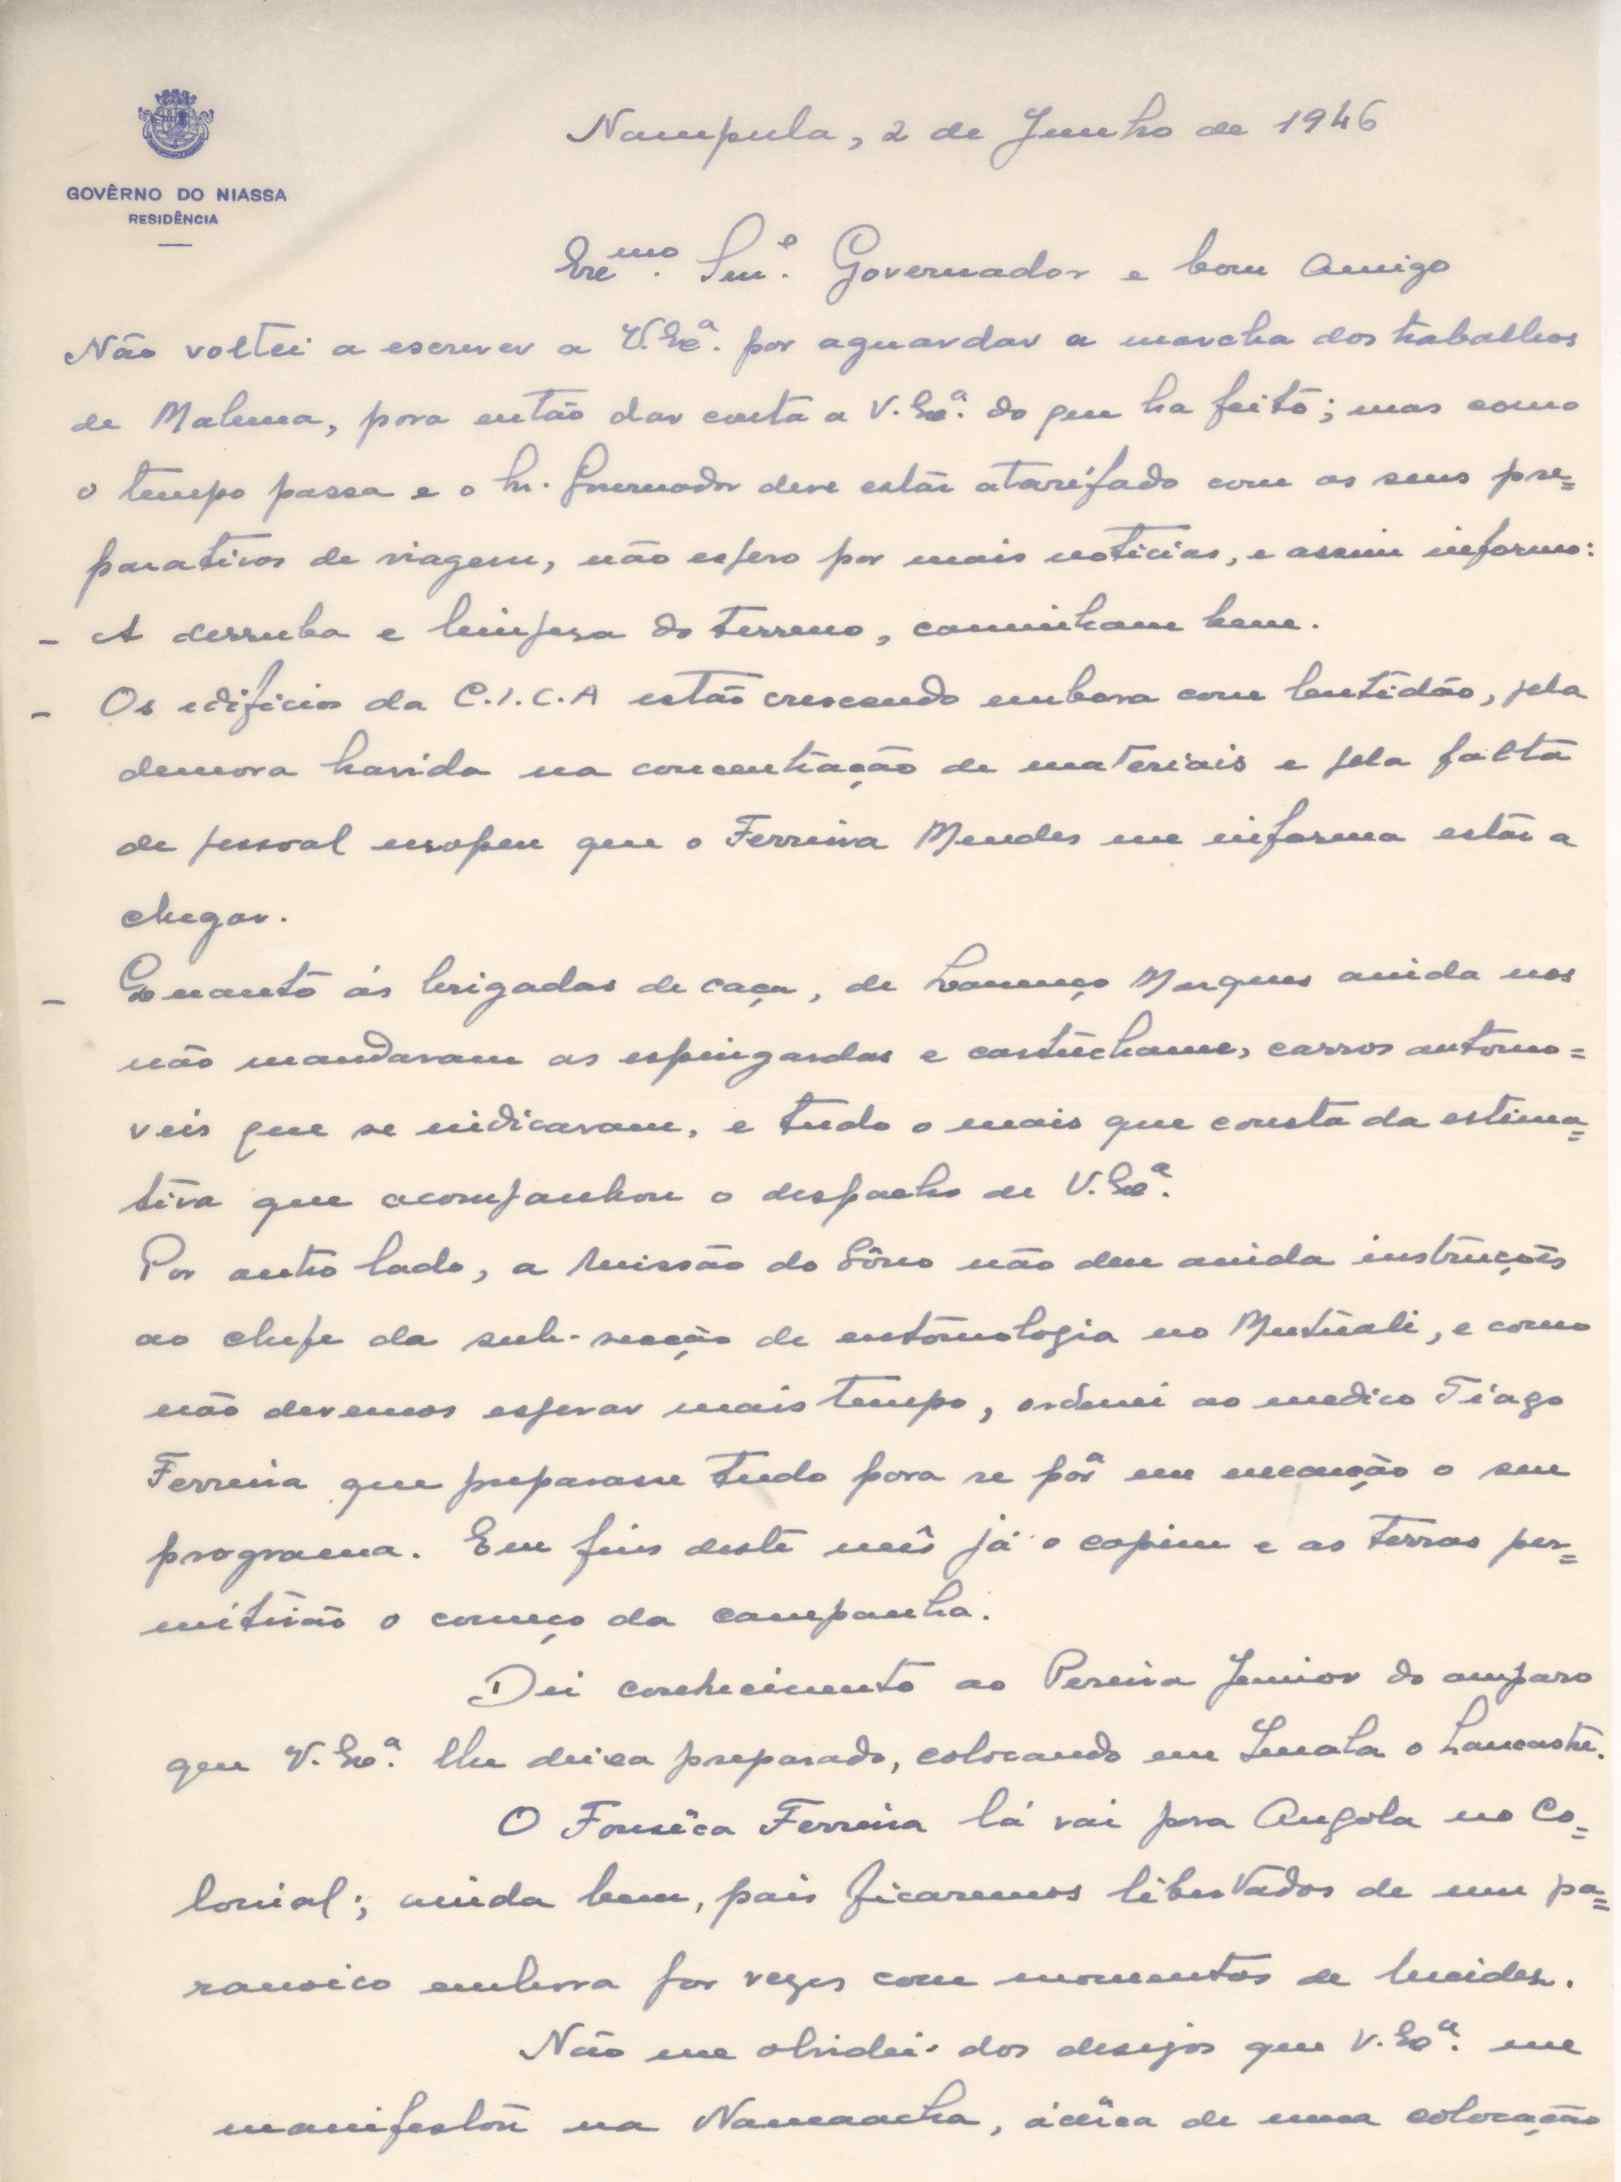 GOVÊRNO DO NIASSA
RESIDÊNCIA
Nampula, 2 de Junho de 1946
Exmo. Snr. Governador e bom Amigo
Não voltei a escrever a V. Exª. por aguardar a marcha dos trabalhos
de Malema, para então dar conta a V. Exª. do que ha feito; mas como
o tempo passa e o Sr. Governador deve estar atarefado com os seus pre=
parativos de viagem, não espero por mais noticias, e assim informo:
- A derruba e limpesa do terreno, caminham bem.
- Os edificios da C.I.C.A estão crescendo embora com lentidão, pela
demora havida na concentração de materiais e pela falta
de pessoal europeu que o Ferreira Mendes me informa estar a
chegar.
- Quanto ás brigadas de caça, de Lourenço Marques ainda nos
não mandaram as espingardas e cartuchame, carros automo=
veis que se indicaram, e tudo o mais que consta da estima=
tiva que acompanhou o despacho de V. Exª.
Por outro lado, a Missão do Sôno não deu ainda instruções
ao chefe da sub-secção de entomologia no Mutuali, e como
não devemos esperar mais tempo, ordenei ao medico Tiago
Ferreira que preparasse tudo para se pôr em execução o seu
programa. Em fins deste mês já o capim e as terras per=
mitirão o começo da campanha.
Dei conhecimento ao Pereira Junior do amparo
que V. Exª. lhe deixa preparado, colocando em Imala o Lancastre.
O Fonsêca Ferreira lá vai para Angola no Co=
lonial; ainda bem, pois ficaremos libertados de um pa=
ranoico embora por vezes com momentos de lucidez.
Não me olvidei dos desejos que V. Exª. me
manifestou na Namaacha, ácêrca de uma colocação